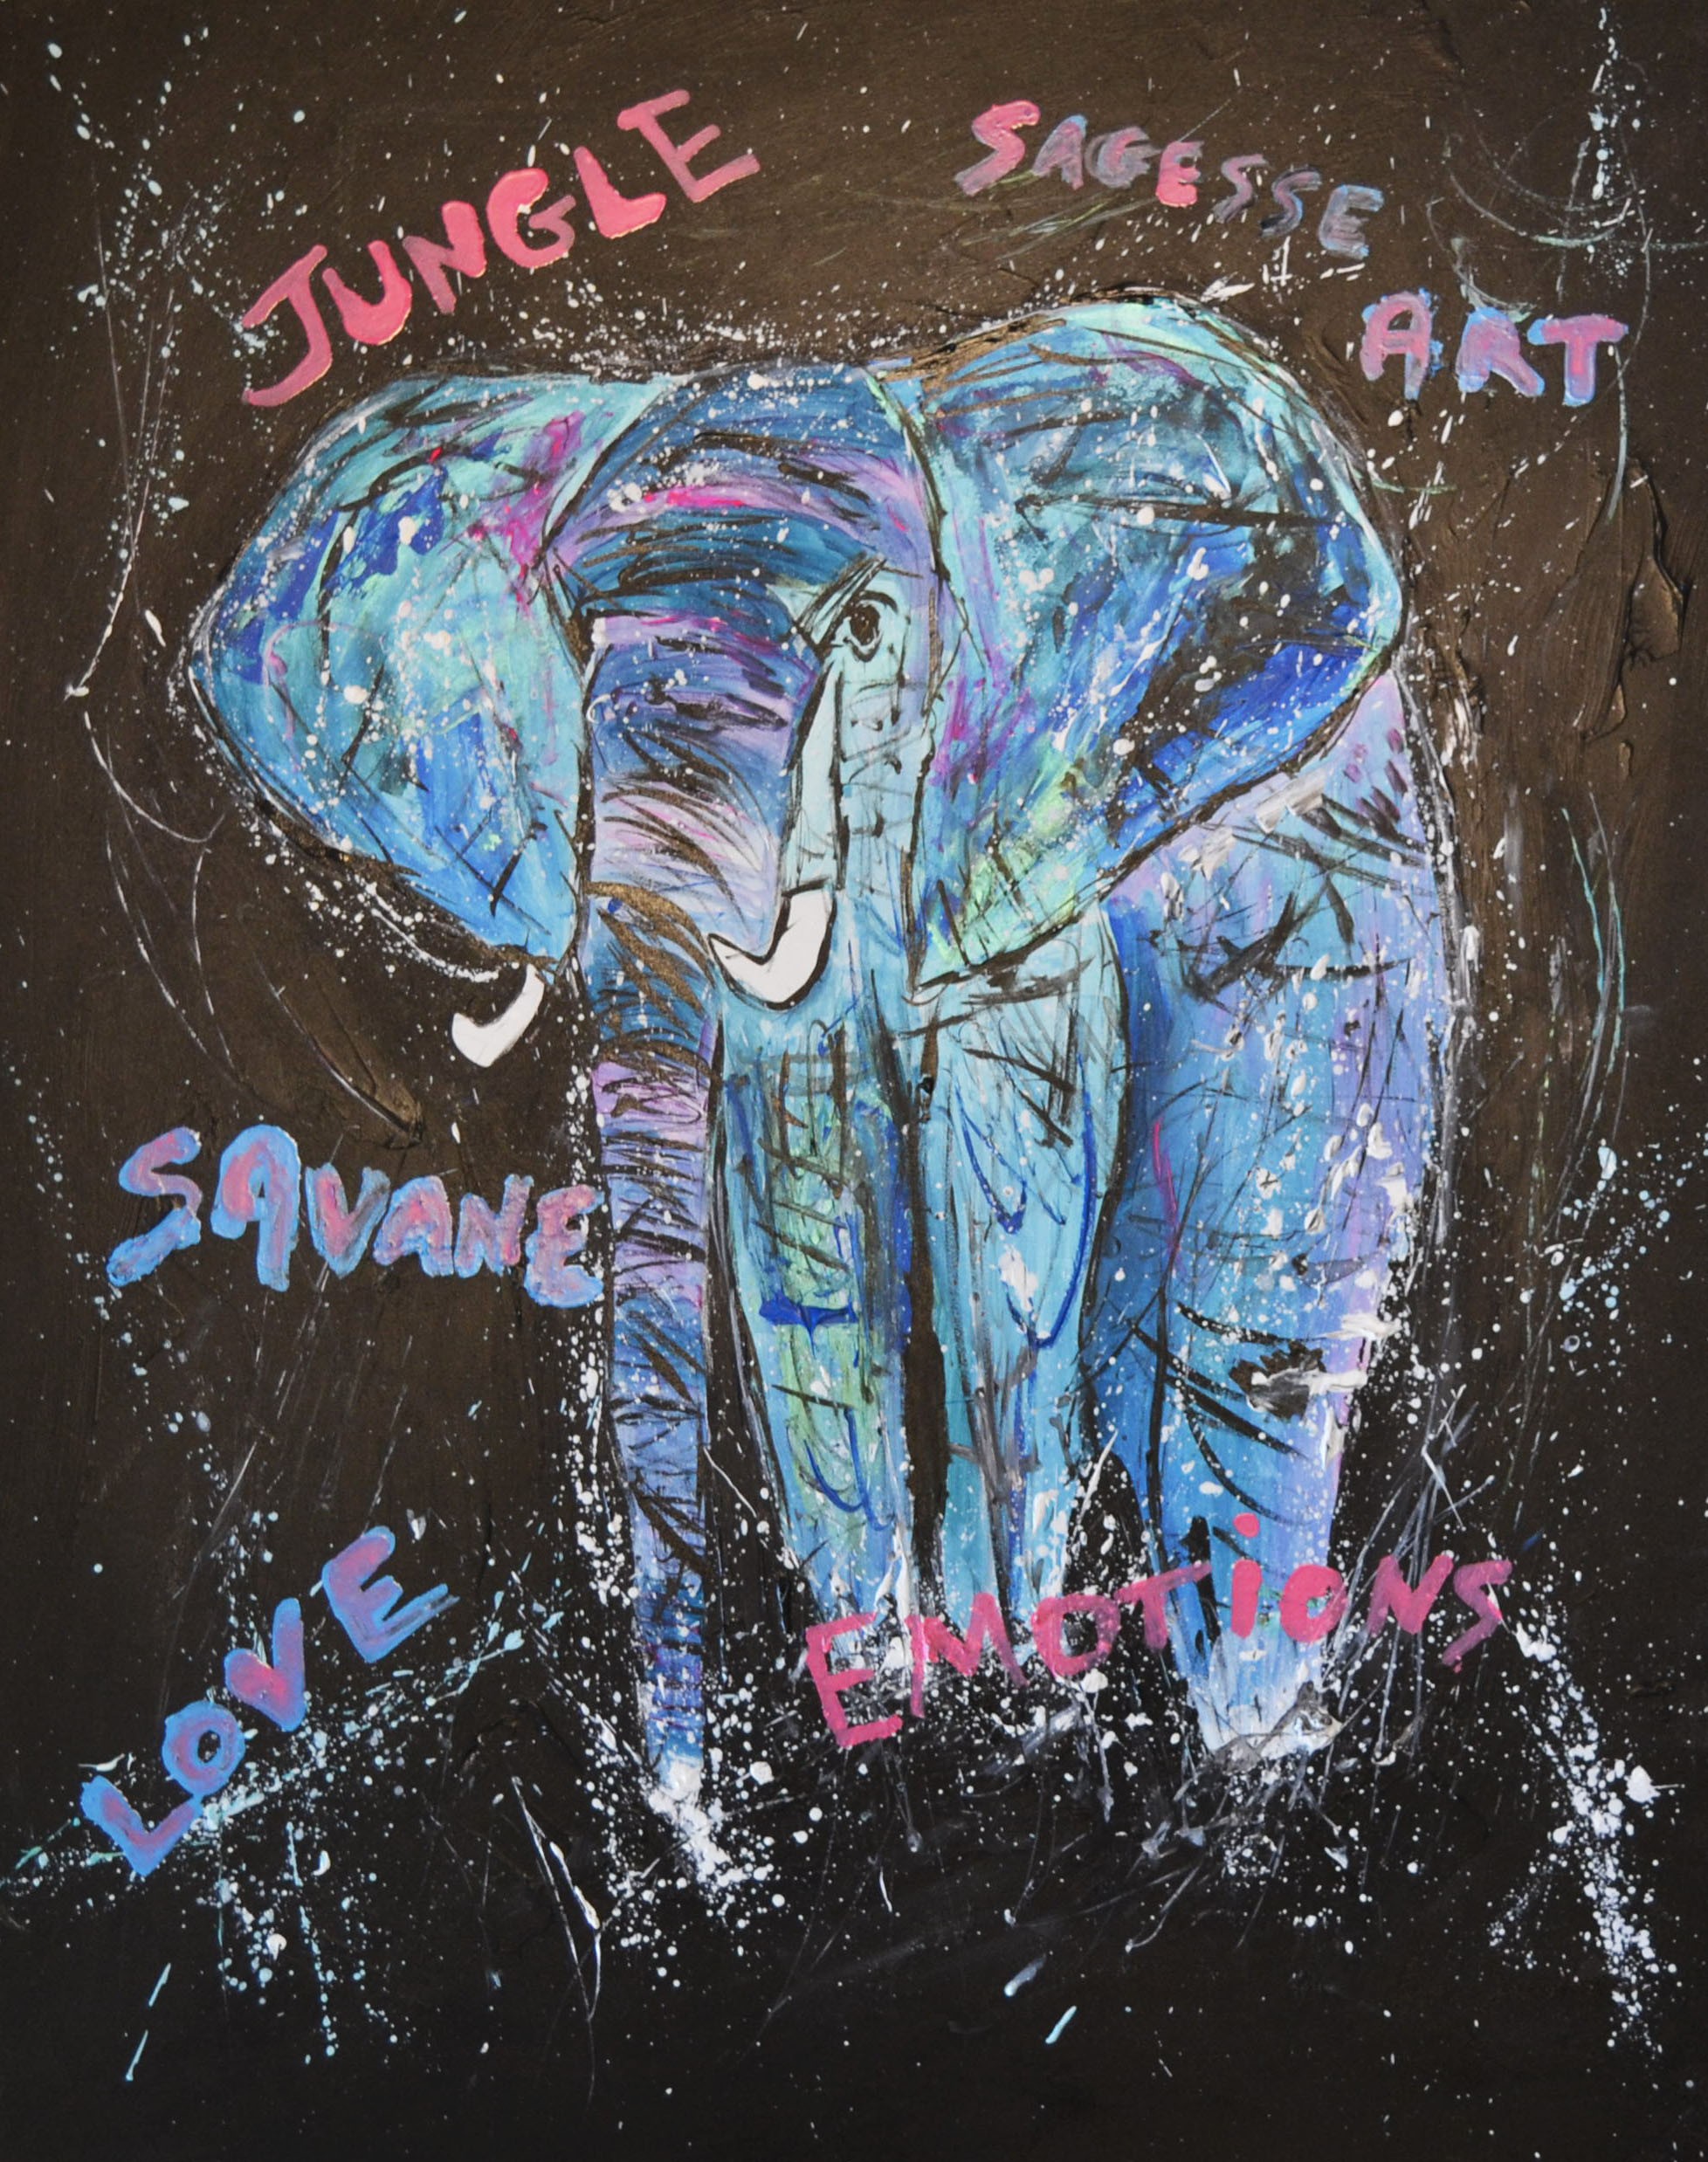 JUNGLE
SAGESSE
ART
SAVANE
LOVE
EMOTIONS